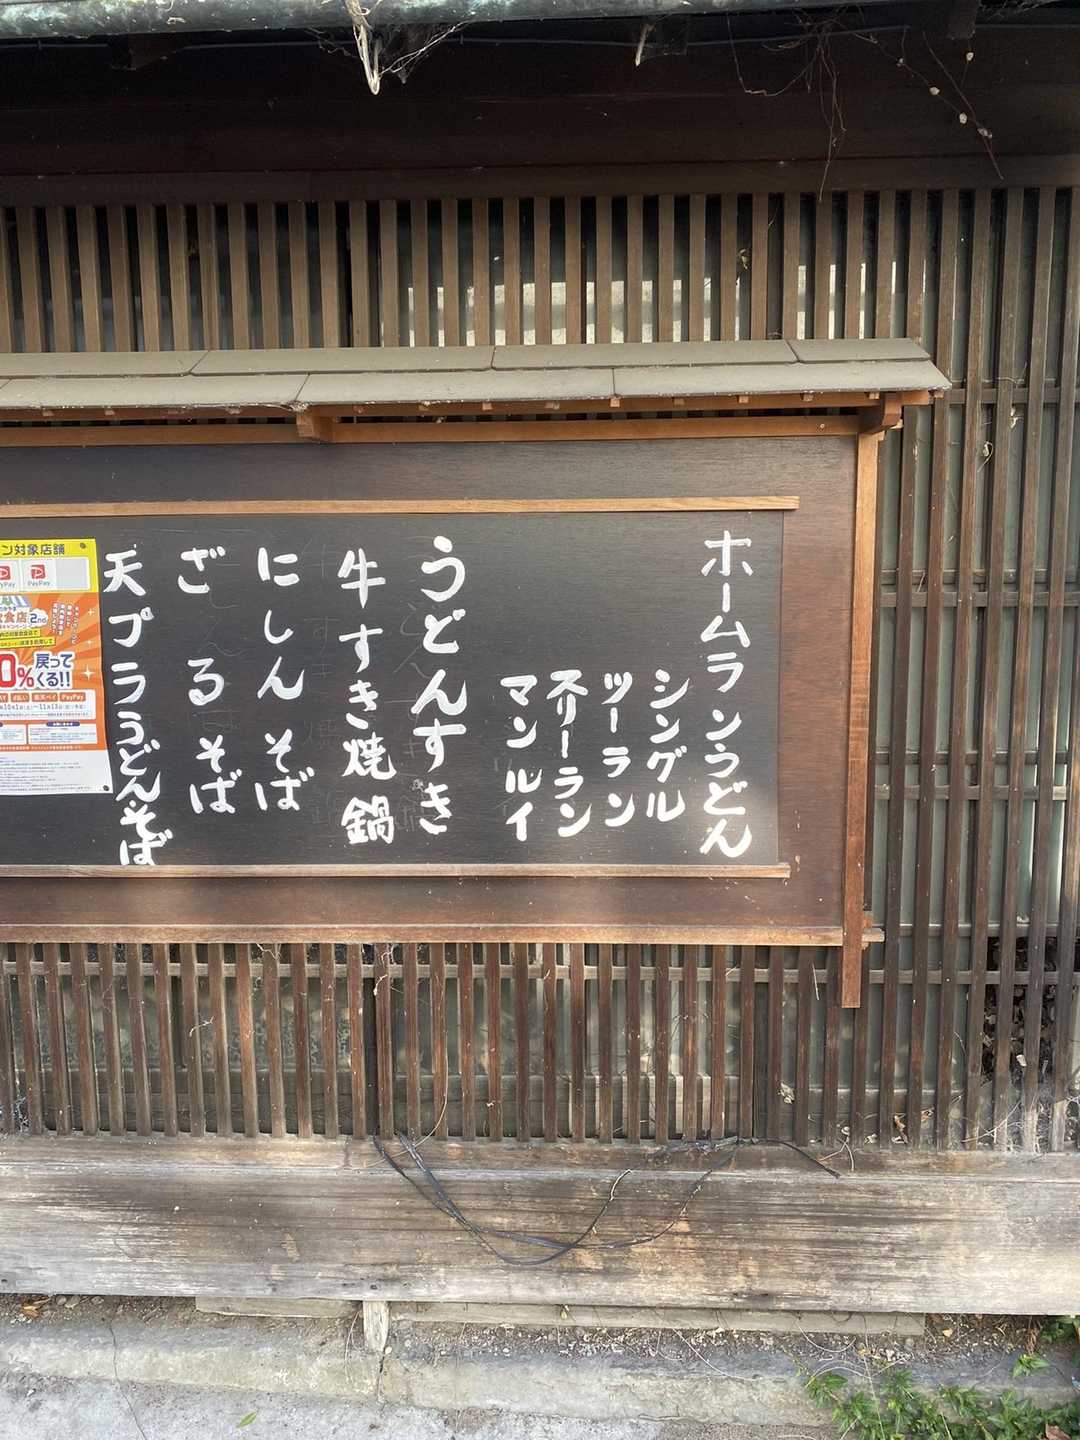 ホームランうどん
シングル
ツーラン
スリーラン
マンルイ
うどんすき
牛すき焼鍋
にしんそば
ざるそば
天プラうどん・そば
ン対象店舗
PayPay
PayPay
食店
2nd
0%
戻って
くる!!
d払い
楽天ペイ
PayPay